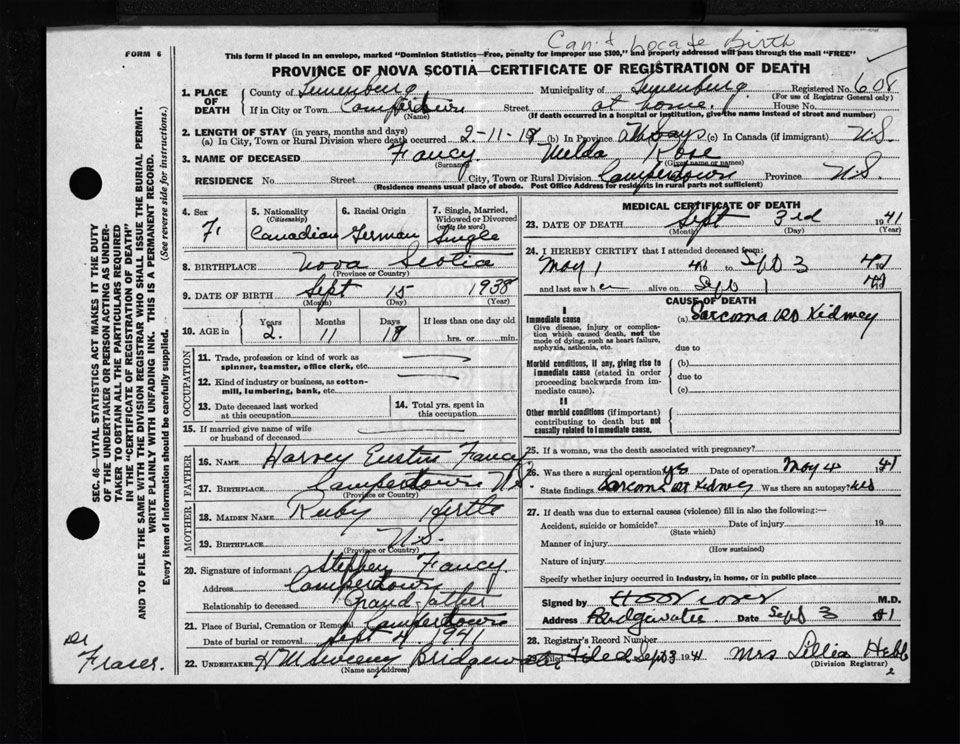 Can't Locate Birth
FORM 6
This form if placed in an envelope, marked "Dominion Statistics—Free, penalty for improper use $300," and properly addressed will pass through the mail "FREE"
PROVINCE OF NOVA SCOTIA—CERTIFICATE OF REGISTRATION OF DEATH
1. PLACE OF DEATH
County of Lunenburg Municipality of Lunenburg Registered No. 608
(For use of Registrar General only)
If in City or Town Camperdown Street at home. House No.
(Name) (If death occurred in a hospital or institution, give the name instead of street and number)
2. LENGTH OF STAY (in years, months and days)
(a) In City, Town or Rural Division where death occurred 2-11-18 (b) In Province (c) In Canada (if immigrant) N.S.
3. NAME OF DECEASED Fancy. Melda Rose
(Surname) (Given name or names)
RESIDENCE No. Street City, Town or Rural Division Camperdown Province N.S.
(Residence means usual place of abode. Post Office Address for residents in rural parts not sufficient)
4. Sex F.
5. Nationality (Citizenship) Canadian
6. Racial Origin German
7. Single, Married, Widowed or Divorced (write the word) Single
8. BIRTHPLACE Nova Scotia
(Province or Country)
9. DATE OF BIRTH Sept 15 1938
(Month) (Day) (Year)
10. AGE in Years 2. Months 11 Days 18 If less than one day old
hrs. or min.
OCCUPATION
11. Trade, profession or kind of work as spinner, teamster, office clerk, etc.
12. Kind of industry or business, as cotton-mill, lumbering, bank, etc.
13. Date deceased last worked at this occupation
14. Total yrs. spent in this occupation.
15. If married give name of wife or husband of deceased
FATHER
16. NAME Harvey Fancy
17. BIRTHPLACE Camperdown N.S.
(Province or Country)
MOTHER
18. MAIDEN NAME Ruby Hirtle
19. BIRTHPLACE N.S.
(Province or Country)
20. Signature of informant Stephen Fancy.
Address Camperdown
Relationship to deceased Grandfather
21. Place of Burial, Cremation or Removal Camperdown
Date of burial or removal Sept 4 1941
22. UNDERTAKER Bridgewater
(Name and address)
MEDICAL CERTIFICATE OF DEATH
23. DATE OF DEATH Sept 3rd 1941
(Month) (Day) (Year)
24. I HEREBY CERTIFY that I attended deceased from:
May 1 to Sept 3 41
and last saw her alive on Sept 1 41
CAUSE OF DEATH
I
Immediate cause (a) Sarcoma Kidney
Give disease, injury or complication which caused death, not the mode of dying, such as heart failure, asphyxia, asthenia, etc.
due to
Morbid conditions, if any, giving rise to immediate cause (stated in order proceeding backwards from immediate cause).
(b)
due to
(c)
II
Other morbid conditions (if important) contributing to death but not causally related to immediate cause.
25. If a woman, was the death associated with pregnancy?
26. Was there a surgical operation yes Date of operation May 4 1941
State findings Sarcoma Kidney Was there an autopsy?
27. If death was due to external causes (violence) fill in also the following:—
Accident, suicide or homicide? Date of injury 19
(State which)
Manner of injury
(How sustained)
Nature of injury
Specify whether injury occurred in industry, in home, or in public place
Signed by M.D.
Address Bridgewater Date Sept 3 41
28. Registrar's Record Number
Filed Sept 3 1941 Mrs Lillia Hebb
(Division Registrar)
2
SEC. 46—VITAL STATISTICS ACT MAKES IT THE DUTY
OF THE UNDERTAKER OR PERSON ACTING AS UNDER-
TAKER TO OBTAIN ALL THE PARTICULARS REQUIRED
IN THE "CERTIFICATE OF REGISTRATION OF DEATH"
AND TO FILE THE SAME WITH THE DIVISION REGISTRAR WHO SHALL ISSUE THE BURIAL PERMIT.
WRITE PLAINLY WITH UNFADING INK. THIS IS A PERMANENT RECORD.
Every item of information should be carefully supplied. (See reverse side for instructions.)
Dr Fraser.